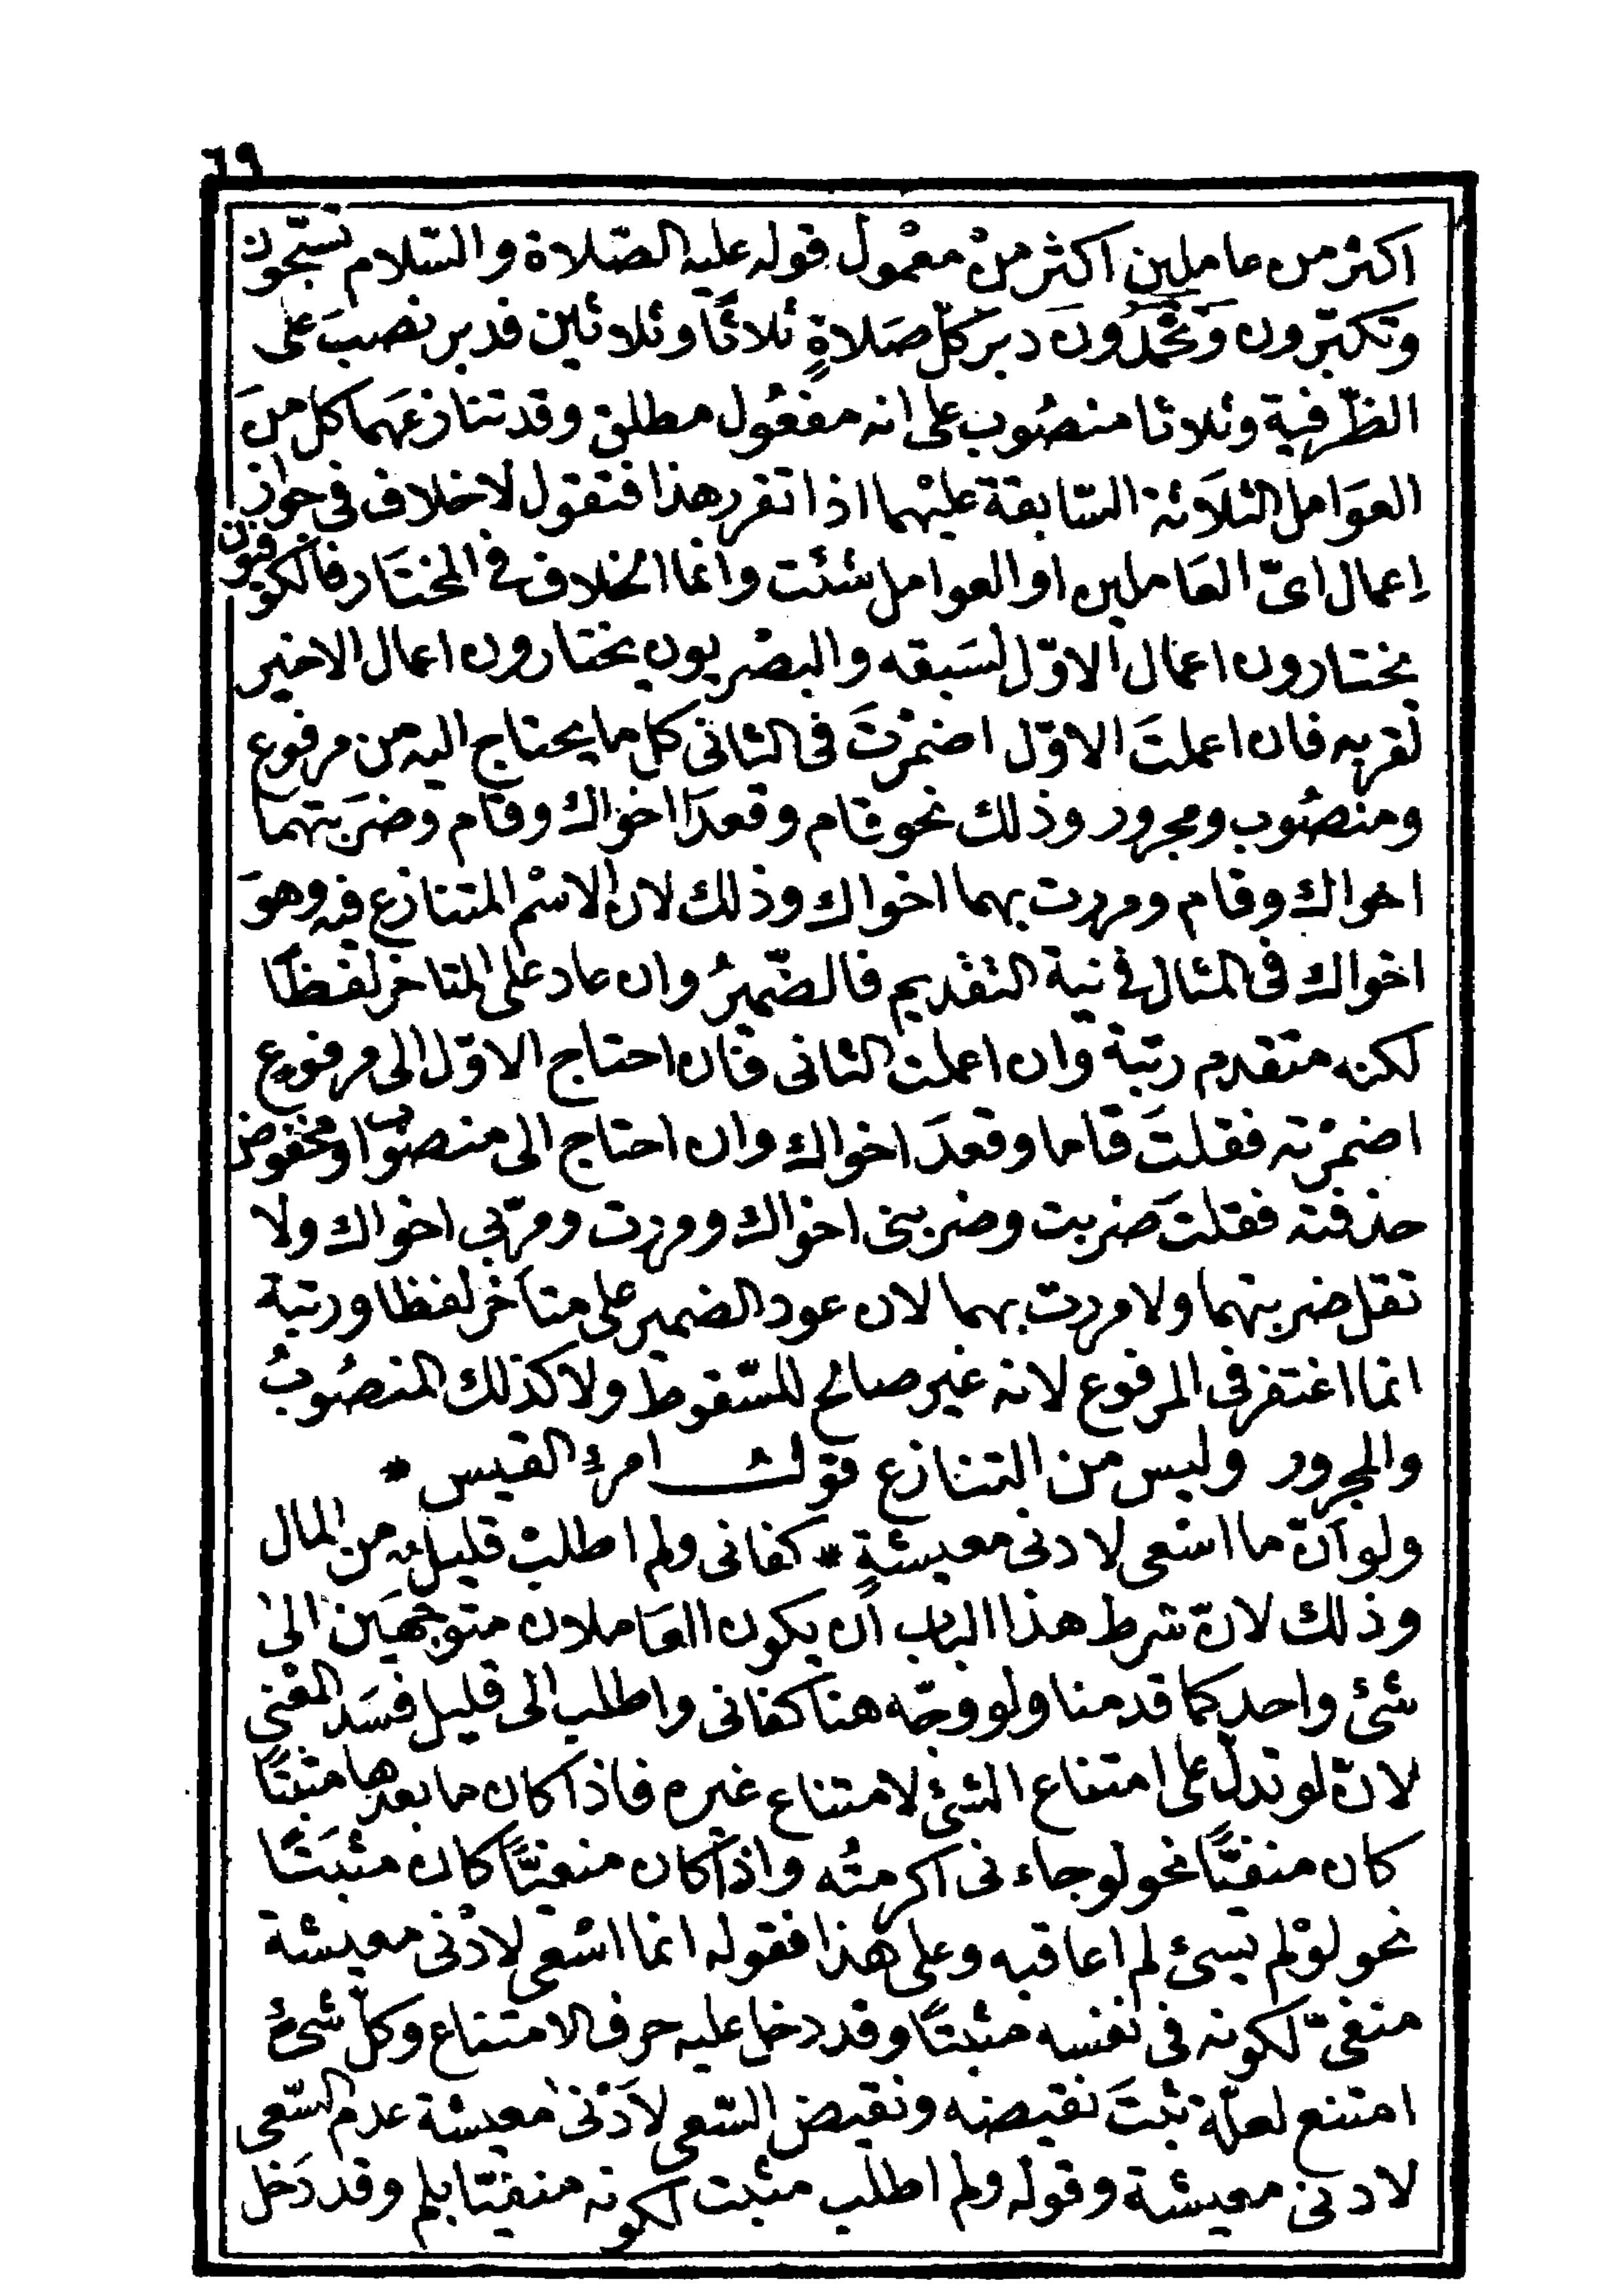 ٦٩
اكثر من عاملين اكثر منْ معْمول قوله عليه الصّلاة والسّلام تسبّحون
وتكبّرون وَتحْمَدُونَ دبر كلّ صَلاةٍ ثلاثًا وثلاثين فدبر نصبَ على
الظّرفية وثلاثا منصُوب على انه مفعُول مطلق وقد تنازعهَما كل منَ
العوَامل الثلاَثة السّابقة عليْهما اذا تقرر هذا فتقول لاخلاف في جواز
اِعمال اىّ العَاملين او العوامل شئت وانما الخلاف في المختَار فالكوفيون
يختارون اعمال الاوّل لسَبقه والبصْريون يختارون اعمال الاخير
لقربه فان اعملتَ الاوّل اضمرْتَ فى الثانى كل ما يحتاج اليه من مرفوع
ومنصُوب ومجرور وذلك نحو قام وقعدَا اخواك وقام وضرَبتهما
اخواك وقام ومررت بهما اخواك وذلك لان الاسْم المتنازع فيه وهوَ
اخواك فى المثال في نية التقديم فالضّميرُ وان عاد على المتاخر لفظًا
لكنه متقدم رتبة وان اعملت الثانى فان احتاج الاوّل الى مرفوع
اضمرْته فقلتَ قاما وقعدَ اخواك وان احتاج الى منصوب او مخفوض
حذفته فقلتَ ضربت وضربنى اخواك ومررت ومرّبى اخواك ولا
تقل ضربتهما ولا مررت بهما لان عود الضمير على متاخر لفظا ورتبة
انما اغتفر في المرفوع لانه غير صالح للسّقوط ولا كذلك المنصُوبُ
والمجرور وليس من التنازع قول امرئ القيس *
ولو انّ ما اسْعى لادنى معيشةٍ * كفانى ولم اطلبْ قليلٌ من المال
وذلك لانّ شرط هذا الباب ان يكون العَاملان متوجّهَين الى
شئ واحد كما قدمنا ولو وجّه هنا كفانى واطلب الى قليل فسَد المعْنى
لانّ لو تدلّ على امتناع الشئ لامتناع غيره فاذا كان ما بعدها مثبتًا
كان منفيّا نحو لو جاءنى اكرمتُه واذا كان منفيّا كان مثبَتًا
نحو لوْ لم يسئ لم اعاقبه وعلى هذا فقوله انما اسْعى لادْنى معيشة
منفىّ لكونه فى نفسه مثبتًا وقد دخل عليه حرف الامتناع وكلّ شئٍ
امتنع لعلّة ثبتَ نقيضه ونقيض السّعى لاَدْنى معيشة عدم السّعى
لادنى معيشة وقوله ولم اطلب مثبت لكونه منفيّا بلم وقد دَخل